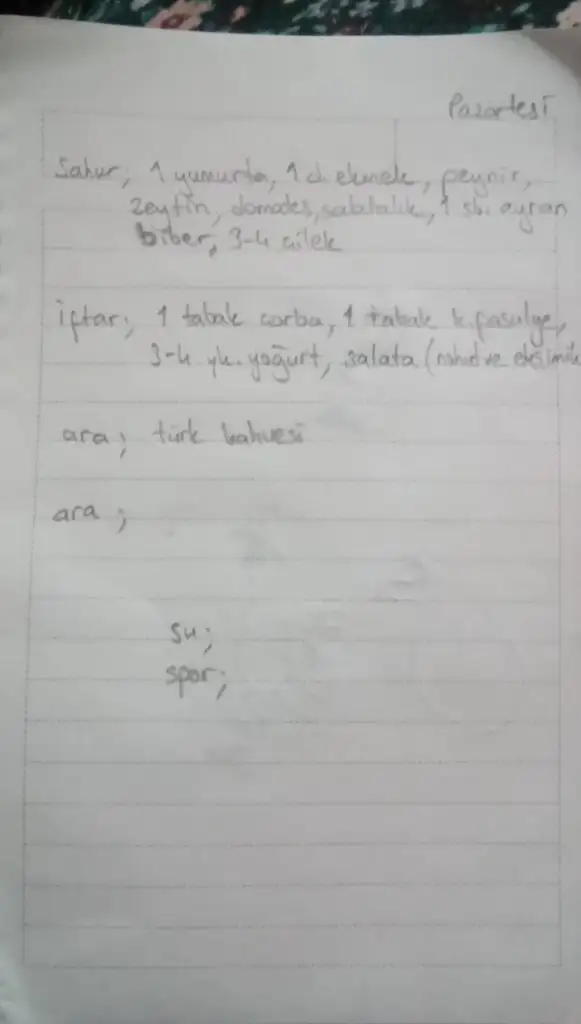 Pazartesi
Sahur; 1 yumurta, 1 d. ekmek, peynir,
zeytin, domates, salatalık, 1 sb. ayran
biber, 3-4 çilek
iftar; 1 tabak çorba, 1 tabak k.fasulye,
3-4 yk. yoğurt, salata (nohut ve
ara; türk kahvesi
ara;
su;
spor;